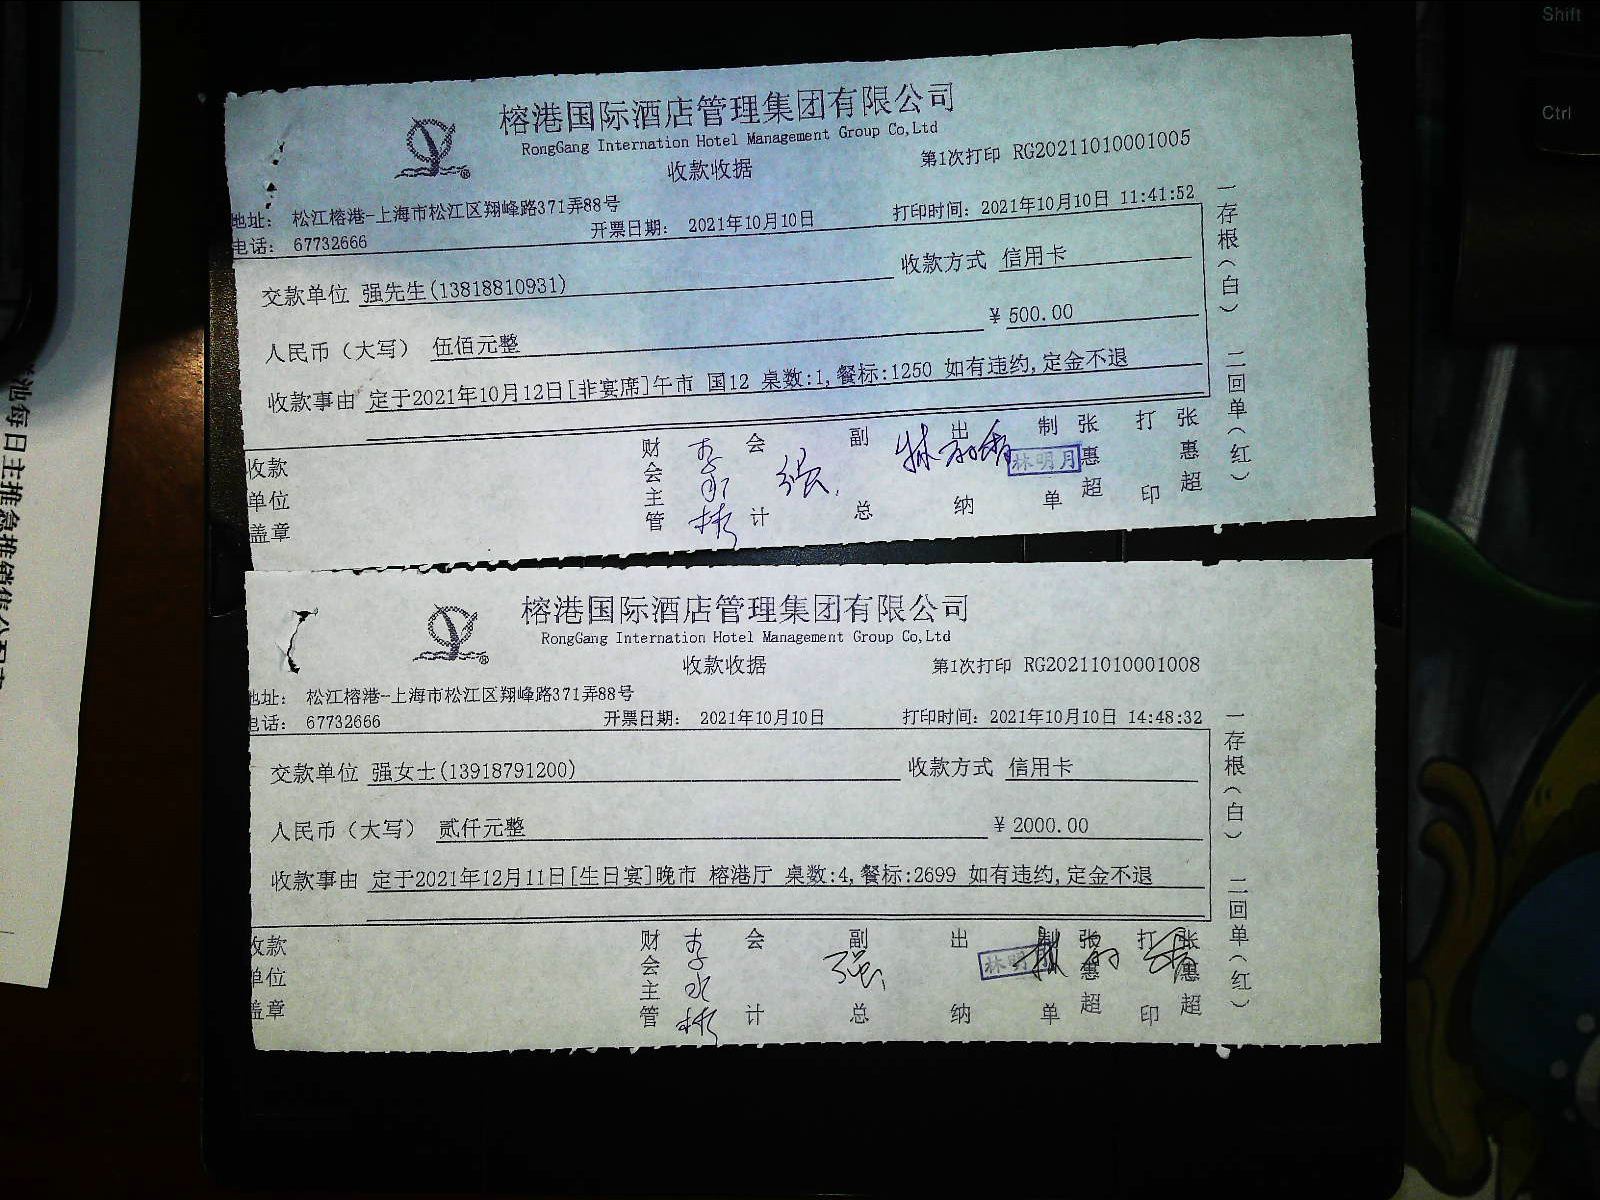 榕港国际酒店管理集团有限公司
RongGang Internation Hotel Management Group Co,Ltd
收款收据
第1次打印 RG20211010001005
地址： 松江榕港-上海市松江区翔峰路371弄88号
电话： 67732666
开票日期： 2021年10月10日
打印时间：2021年10月10日 11:41:52
交款单位 强先生(13818810931)
收款方式 信用卡
人民币（大写） 伍佰元整
¥ 500.00
收款事由 定于2021年10月12日[非宴席]午市 国12 桌数:1,餐标:1250 如有违约,定金不退
收款单位盖章
财会主管
会计
副总
出纳
林明月
制单
张惠超
打印
张惠超
一存根（白） 二回单（红）
榕港国际酒店管理集团有限公司
RongGang Internation Hotel Management Group Co,Ltd
收款收据
第1次打印 RG20211010001008
地址： 松江榕港-上海市松江区翔峰路371弄88号
电话： 67732666
开票日期： 2021年10月10日
打印时间：2021年10月10日 14:48:32
交款单位 强女士(13918791200)
收款方式 信用卡
人民币（大写） 贰仟元整
¥ 2000.00
收款事由 定于2021年12月11日[生日宴]晚市 榕港厅 桌数:4,餐标:2699 如有违约,定金不退
收款单位盖章
财会主管
会计
副总
强
出纳
制单
张惠超
打印
张惠超
一存根（白） 二回单（红）
Shift
Ctrl